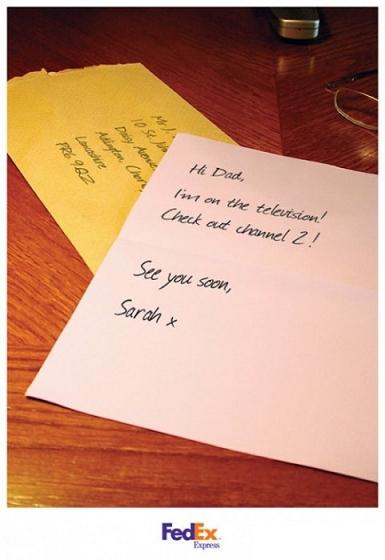 Mr J.
10 St.
Daisy Avenue
Adlington, Chorl
Lancashire
PR6 9QZ
Hi Dad,
I'm on the television!
Check out channel 2!
See you soon,
Sarah x
FedEx
Express